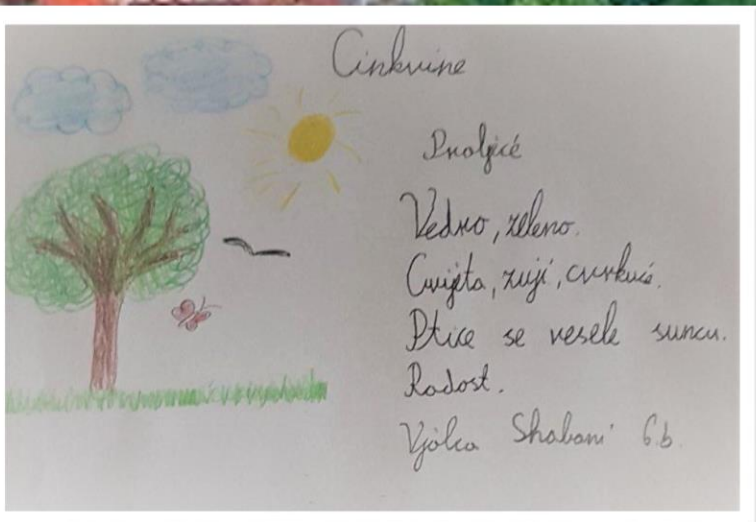 Cinkvine
Proljeće
Vedro, zeleno.
Cvijeta, zuji, cvrkuć.
Ptice se vesele suncu.
Radost.
Vjolca Shabani 6.b